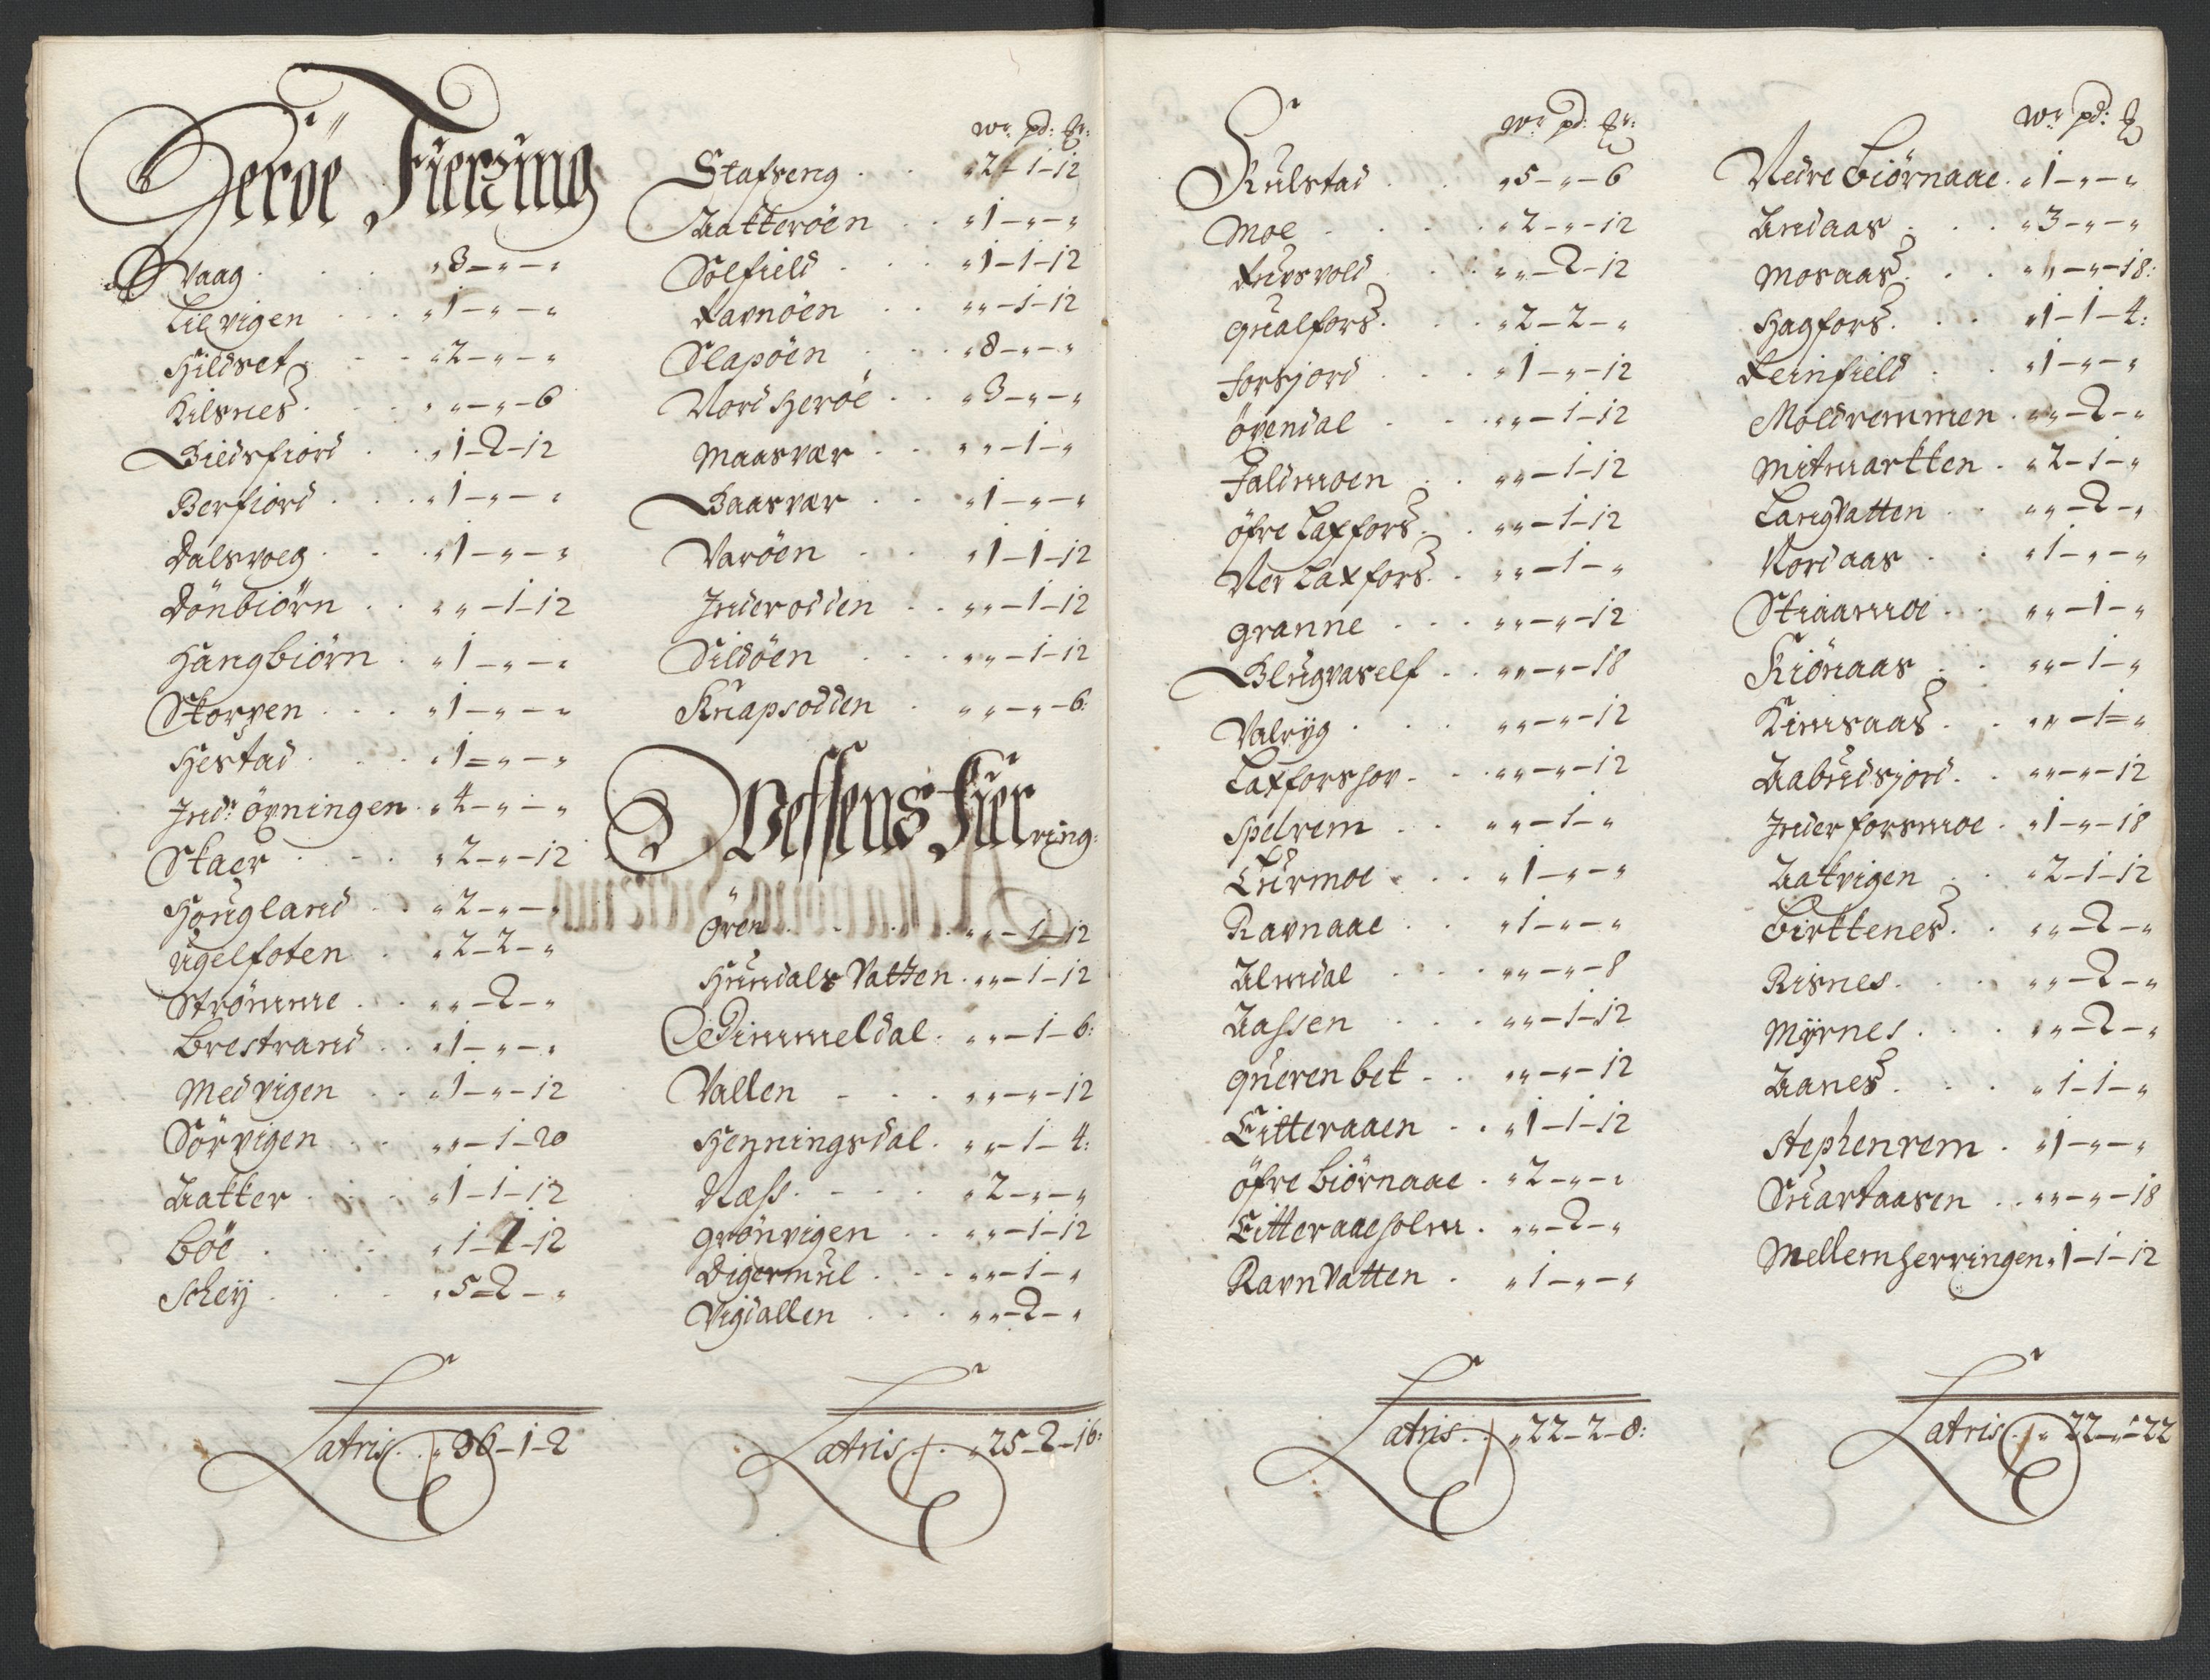 Heröe Fierzing
Vaag . . . „ 3 – „ – „
Lilvigen . . . „ 1 – „ – „
Hildset . . „ 2 – „ – „
Kilsnes . . „ „ – „ – 6
Biedsfiord . . „ 1 – 2 – 12
Berfiord . . „ 1 – „ – „
Dalsvoeg . . „ 1 – „ – „
Dönbiörn . . „ „ – 1 – 12
Hangbiörn . „ 1 – „ – „
Skorpen . . . „ 1 – „ – „
Hestad . . . „ 1 = „ – „
Indr: öxningen . „ 4 – „ – „
Skaer . . . „ 2 – „ – 12
Hougland . . „ 2 – „ – „
Ugelfoten . „ 2 – 2 – „
Strömme . . „ „ – 2 – „
Brestrand . . „ 1 – „ – „
Medvigen . . „ 1 – „ – 12
Sörvigen . . „ „ – 1 – 20
Aakker . . . „ 1 – 1 – 12
Böe . . . „ 1 – 1 – 12
Schey . . . „ 5 – 2 – „
Latris . . „ 36 – 1 – 2
Wr: pd:
Stafseng . . „ 2 – 1 – 12
Aakkeröen . . „ 1 – „ – „
Solfield . . . „ 1 – 1 – 12
Ravnöen . . „ „ – 1 – 12
Slapöen . . . „ 8 – „ – „
Nord Heröe . . „ 3 – „ – „
Maasvær . . „ „ – 1 – „
Baasvær . . „ 1 – „ – „
Varöen . . . „ 1 – 1 – 12
Inderodden . . „ „ – 1 – 12
Sildöen . . . „ „ – 1 – 12
Knapsodden . „ „ – „ – 6:
Vefsens Fierring:
Ören . . . . „ „ – 1 – 12
Hundals Vatten . „ „ – 1 – 12
Simmeldal . „ „ – 1 – 6:
Vallen – . . „ „ – „ – 12
Henningsdal . „ „ – 1 – 4:
Næss . – . . „ 2 – „ – „
Grönvigen . . „ „ – 1 – 12
Digermul . . – „ „ – 1 – „
Vigdallen . . . „ „ – 2 – „
Latris . . „ 25 – 2 – 16:
Wr: pd:
Kulstad . . „ 5 – „ – 6
Moe . . . . „ 2 – „ – 12
. . „ „ – 2 – 12
Qualfors . . . „ 2 – 2 – „
Forsjord . . . „ 1 – „ – 12
Öxendal . . „ „ – 1 – 12
Faldmoen . . „ „ – 1 – 12
Öfre Laxfors . . „ „ – 1 – 12
Ner Laxfors . . „ „ – 1 – „
Granne . . . „ „ – „ – 12
Blugvaself . . „ „ – „ – 18
Valryg . . . „ „ – „ – 12
Laxforshov . . „ „ – „ – 12
Spelrem . . „ „ – 1 – „
Lurmoe . . . „ 1 – „ – „
Ravnaae . . „ 1 – „ – „
Almdal . . . „ „ – „ – 8
Aassen . . . „ „ – 1 – 12
Querenbet . . „ „ – „ – 12
Eitteraaen . . „ 1 – 1 – 12
Öfre Biörnaae . „ 2 – „ – „
Eitteraaeholm . „ „ – 2 – „
RavnVatten . „ 1 – „ – „
Latris . . „ 22 – 2 – 8:
Wr: pd:
Nedre Biörnaae . „ 1 – „ – „
Andaas . . . „ 3 – „ – „
Mosaas . . . „ „ – „ – 18:
Hagfors . . . „ 1 – 1 – 4:
Reinfield . . „ 1 – „ – „
Moldremmen . „ „ – 2 – „
Mitmarkken . „ 2 – 1 – „
LangVatten . . „ „ – 2 – „
Nordaas . . „ 1 – „ – „
Staamoe . . „ „ – 1 – „
Kiönaas . . „ „ – 1 – „
Kimsaas . . „ „ – 1 = „
Aabudsjord . . „ „ – „ – 12
Inder forsmoe . „ 1 – „ – 18
Aakvigen . . „ 2 – 1 – 12
Birkkenes . . „ „ – 2 – „
Risnes . . . „ „ – 2 – „
Myrnes . . . „ „ – 2 – „
Aanes . . . „ 1 – 1 – „
Stephenrem . „ 1 – „ – „
Suartaasen . . „ „ – „ – 18
Mellemherringen „ 1 – 1 – 12
Latris . . „ 22 – „ – 22